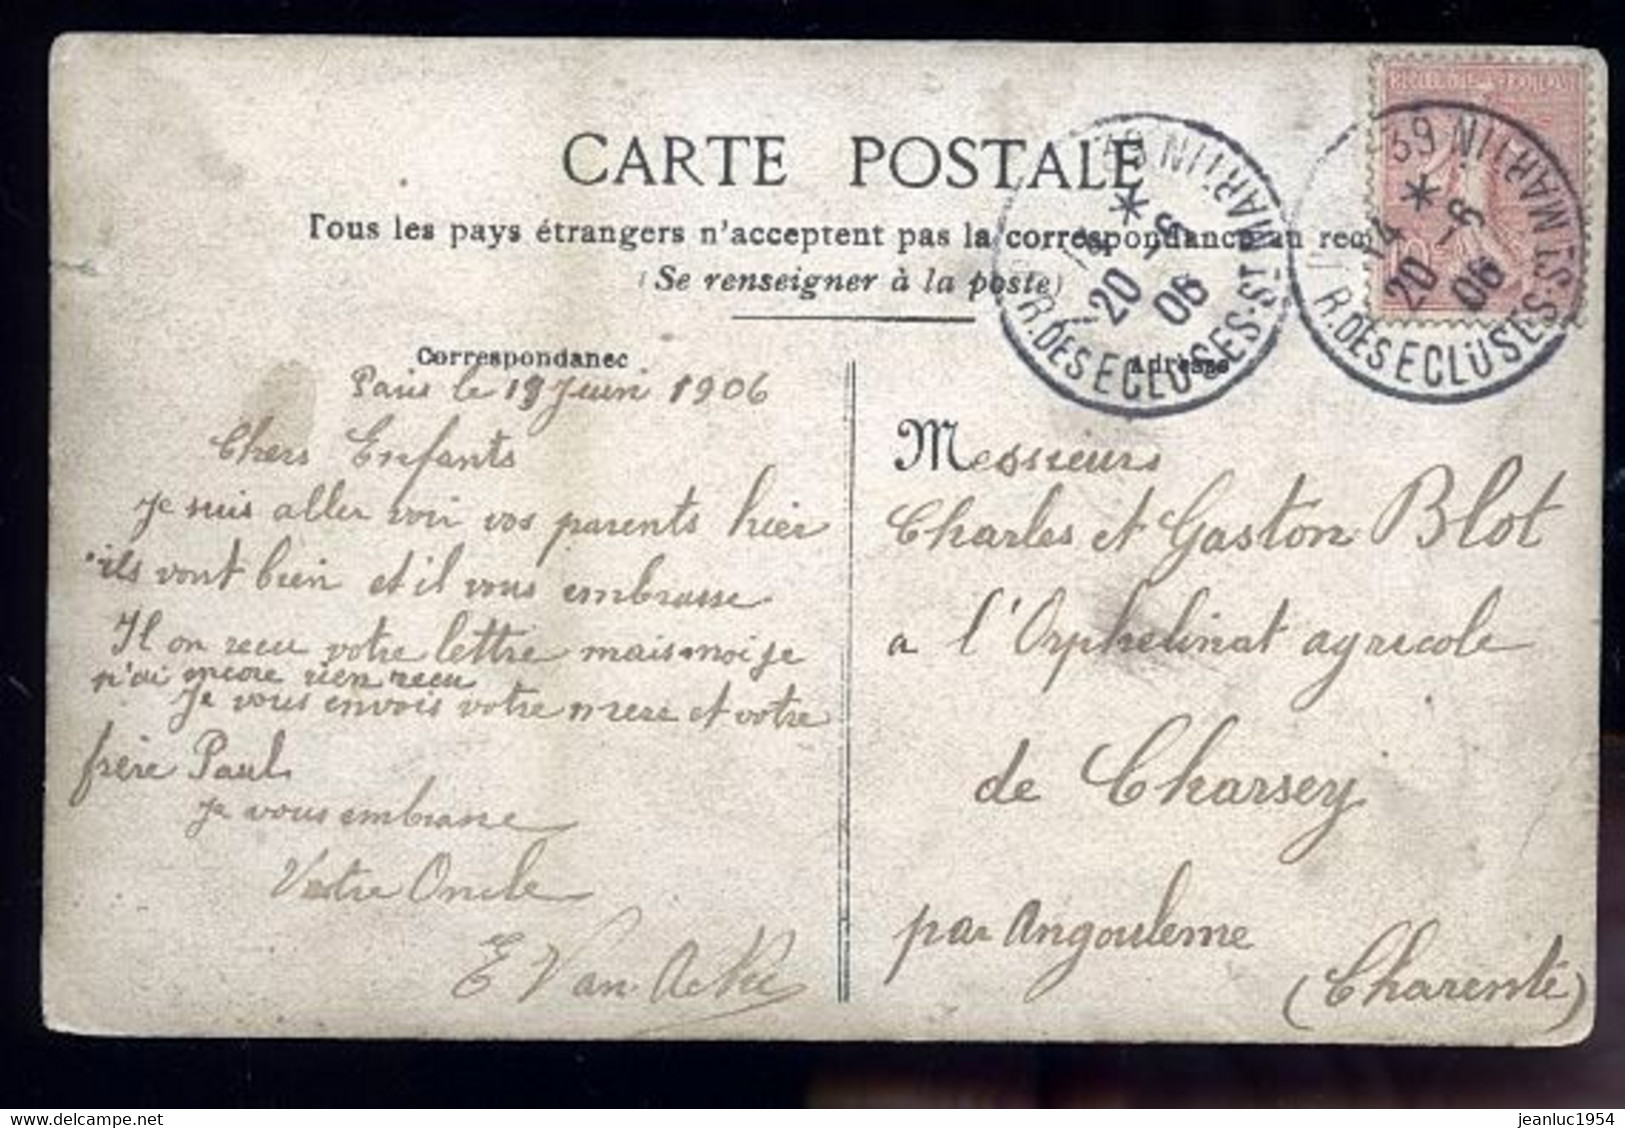 CARTE POSTALE
Tous les pays étrangers n'acceptent pas la correspondance au
(Se renseigner à la poste)
Correspondance
Adresse
REPUBLIQUE FRANCAISE
R. DES ECLUSES-ST MARTIN 69
14 *
20 -6
06
R. DES ECLUSES-ST MARTIN 69
*
20 -6
06
Paris le 19 Juin 1906
Chers Enfants
Je suis aller voir vos parents hier
ils vont bien et il vous embrasse
Il on recu votre lettre mais moi je
n'ai encore rien recu
Je vous envois votre mere et votre
frère Paul
Je vous embrasse
Votre Oncle
E Van
Messieurs
Charles et Gaston Blot
a l'Orphelinat agricole
de Charsey
par Angouleme
(Charente)
jeanluc1954
www.delcampe.net